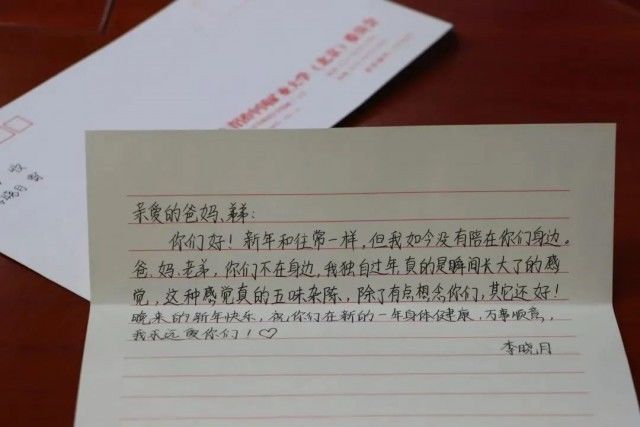 中国矿业大学（北京）委员会
收
亲爱的爸妈、弟弟：
你们好！新年和往常一样，但我如今没有陪在你们身边。
爸、妈、老弟，你们不在身边，我独自过年真的是瞬间长大了的感
觉，这种感觉真的五味杂陈，除了有点想念你们，其它还好！
晚来的新年快乐，祝你们在新的一年身体健康，万事顺意，
我永远爱你们！♡
李晓月